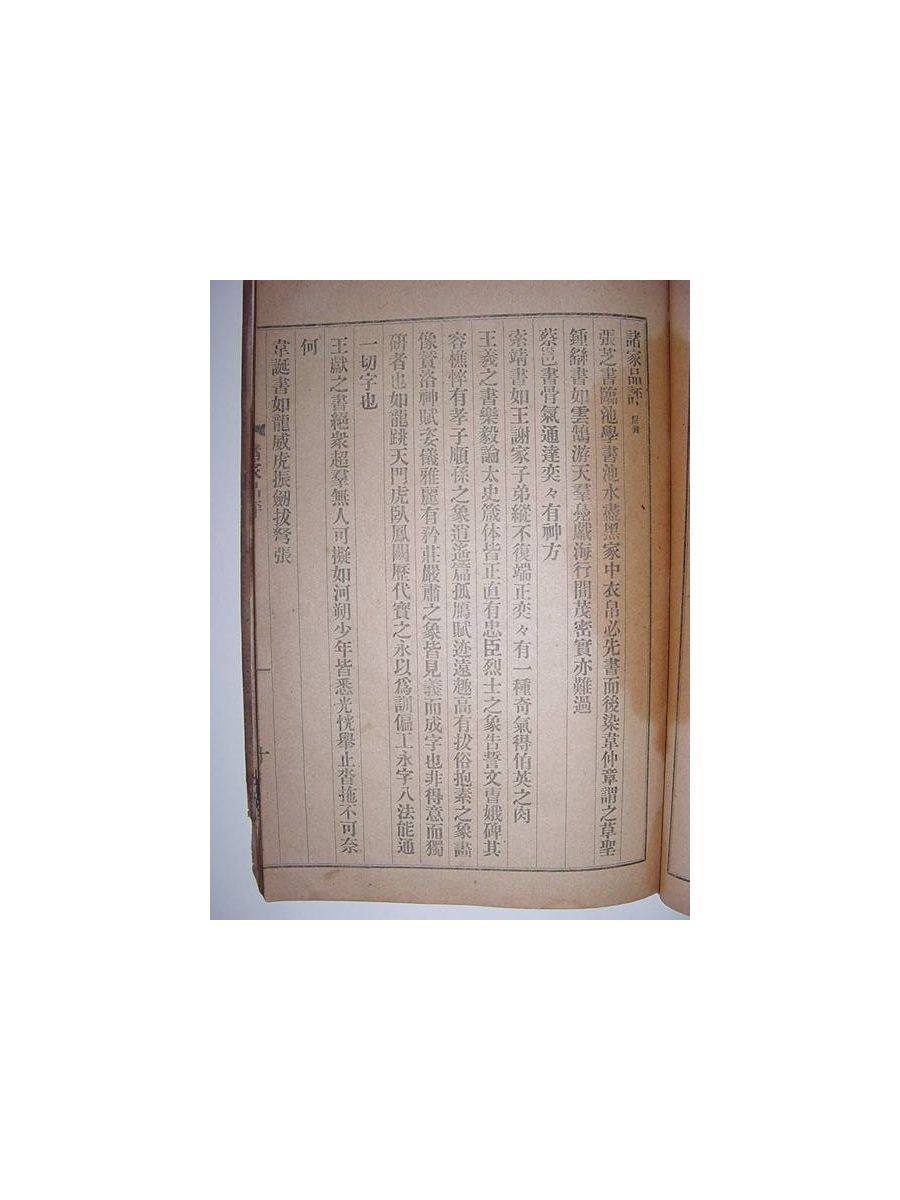 諸家品評 附錄
張芝書臨池學書池水盡黑家中衣帛必先書而後染韋仲章謂之草聖
鍾繇書如雲鵠游天羣鳧戲海行間茂密實亦難過
蔡邕書骨氣通達奕々有神方
索靖書如王謝家子弟縱不復端正奕々有一種奇氣得伯英之肉
王羲之書樂毅論太史箴体皆正直有忠臣烈士之象告誓文曹娥碑其
容樵悴有孝子順係之象逍遙篇孤鴈賦迹遠趣高有拔俗抱素之象畵
像賛洛神賦姿儀雅麗有矜莊嚴肅之象皆見義而成字也非得意而獨
硏者也如龍跳天門虎臥鳳闕歷代寶之永以爲訓偏工永字八法能通
一切字也
王獻之書絕衆超羣無人可擬如河朔少年皆悉光恍舉止沓拖不可奈
何
韋誕書如龍威虎振劒拔弩張